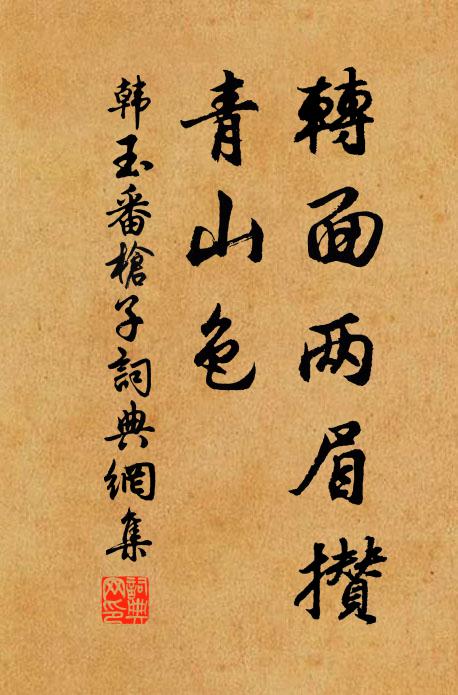 轉面两眉攢
青山色
韩玉番槍子詞典網集
詞典网印